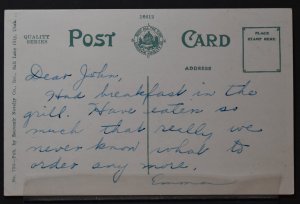 18613
QUALITY SERIES
POST CARD
PLACE STAMP HERE
ADDRESS
Dear John,
Had breakfast in the
grill. Have eaten so
much that really we
never know what to
order any more.
Emma